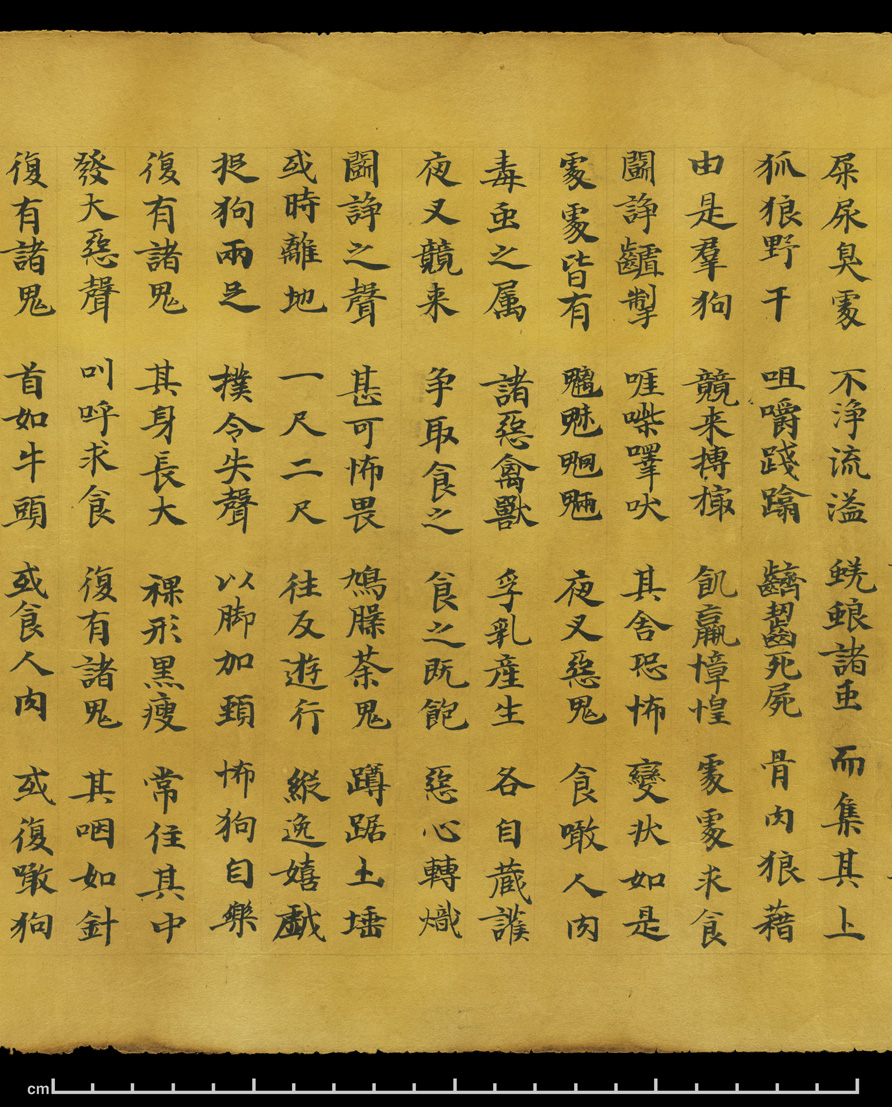 屎尿臭處 不淨流溢 蜣蜋諸虫 而集其上
狐狼野干 咀嚼踐蹹 齩齧死屍 骨肉狼藉
由是羣狗 競来搏撮 飢羸慞惶 處處求食
鬪諍齟掣 啀喍嘷吠 其舍恐怖 變狀如是
處處皆有 魑魅魍魎 夜叉惡鬼 食噉人肉
毒虫之属 諸惡禽獸 孚乳產生 各自蔵護
夜叉競来 争取食之 食之既飽 惡心轉熾
鬪諍之聲 甚可怖畏 鳩腂荼鬼 蹲踞土埵
或時離地 一尺二尺 往反遊行 縱逸嬉戲
捉狗兩足 撲令失聲 以脚加頸 怖狗自樂
復有諸鬼 其身長大 裸形黒瘦 常住其中
發大惡聲 叫呼求食 復有諸鬼 其咽如針
復有諸鬼 首如牛頭 或食人肉 或復噉狗